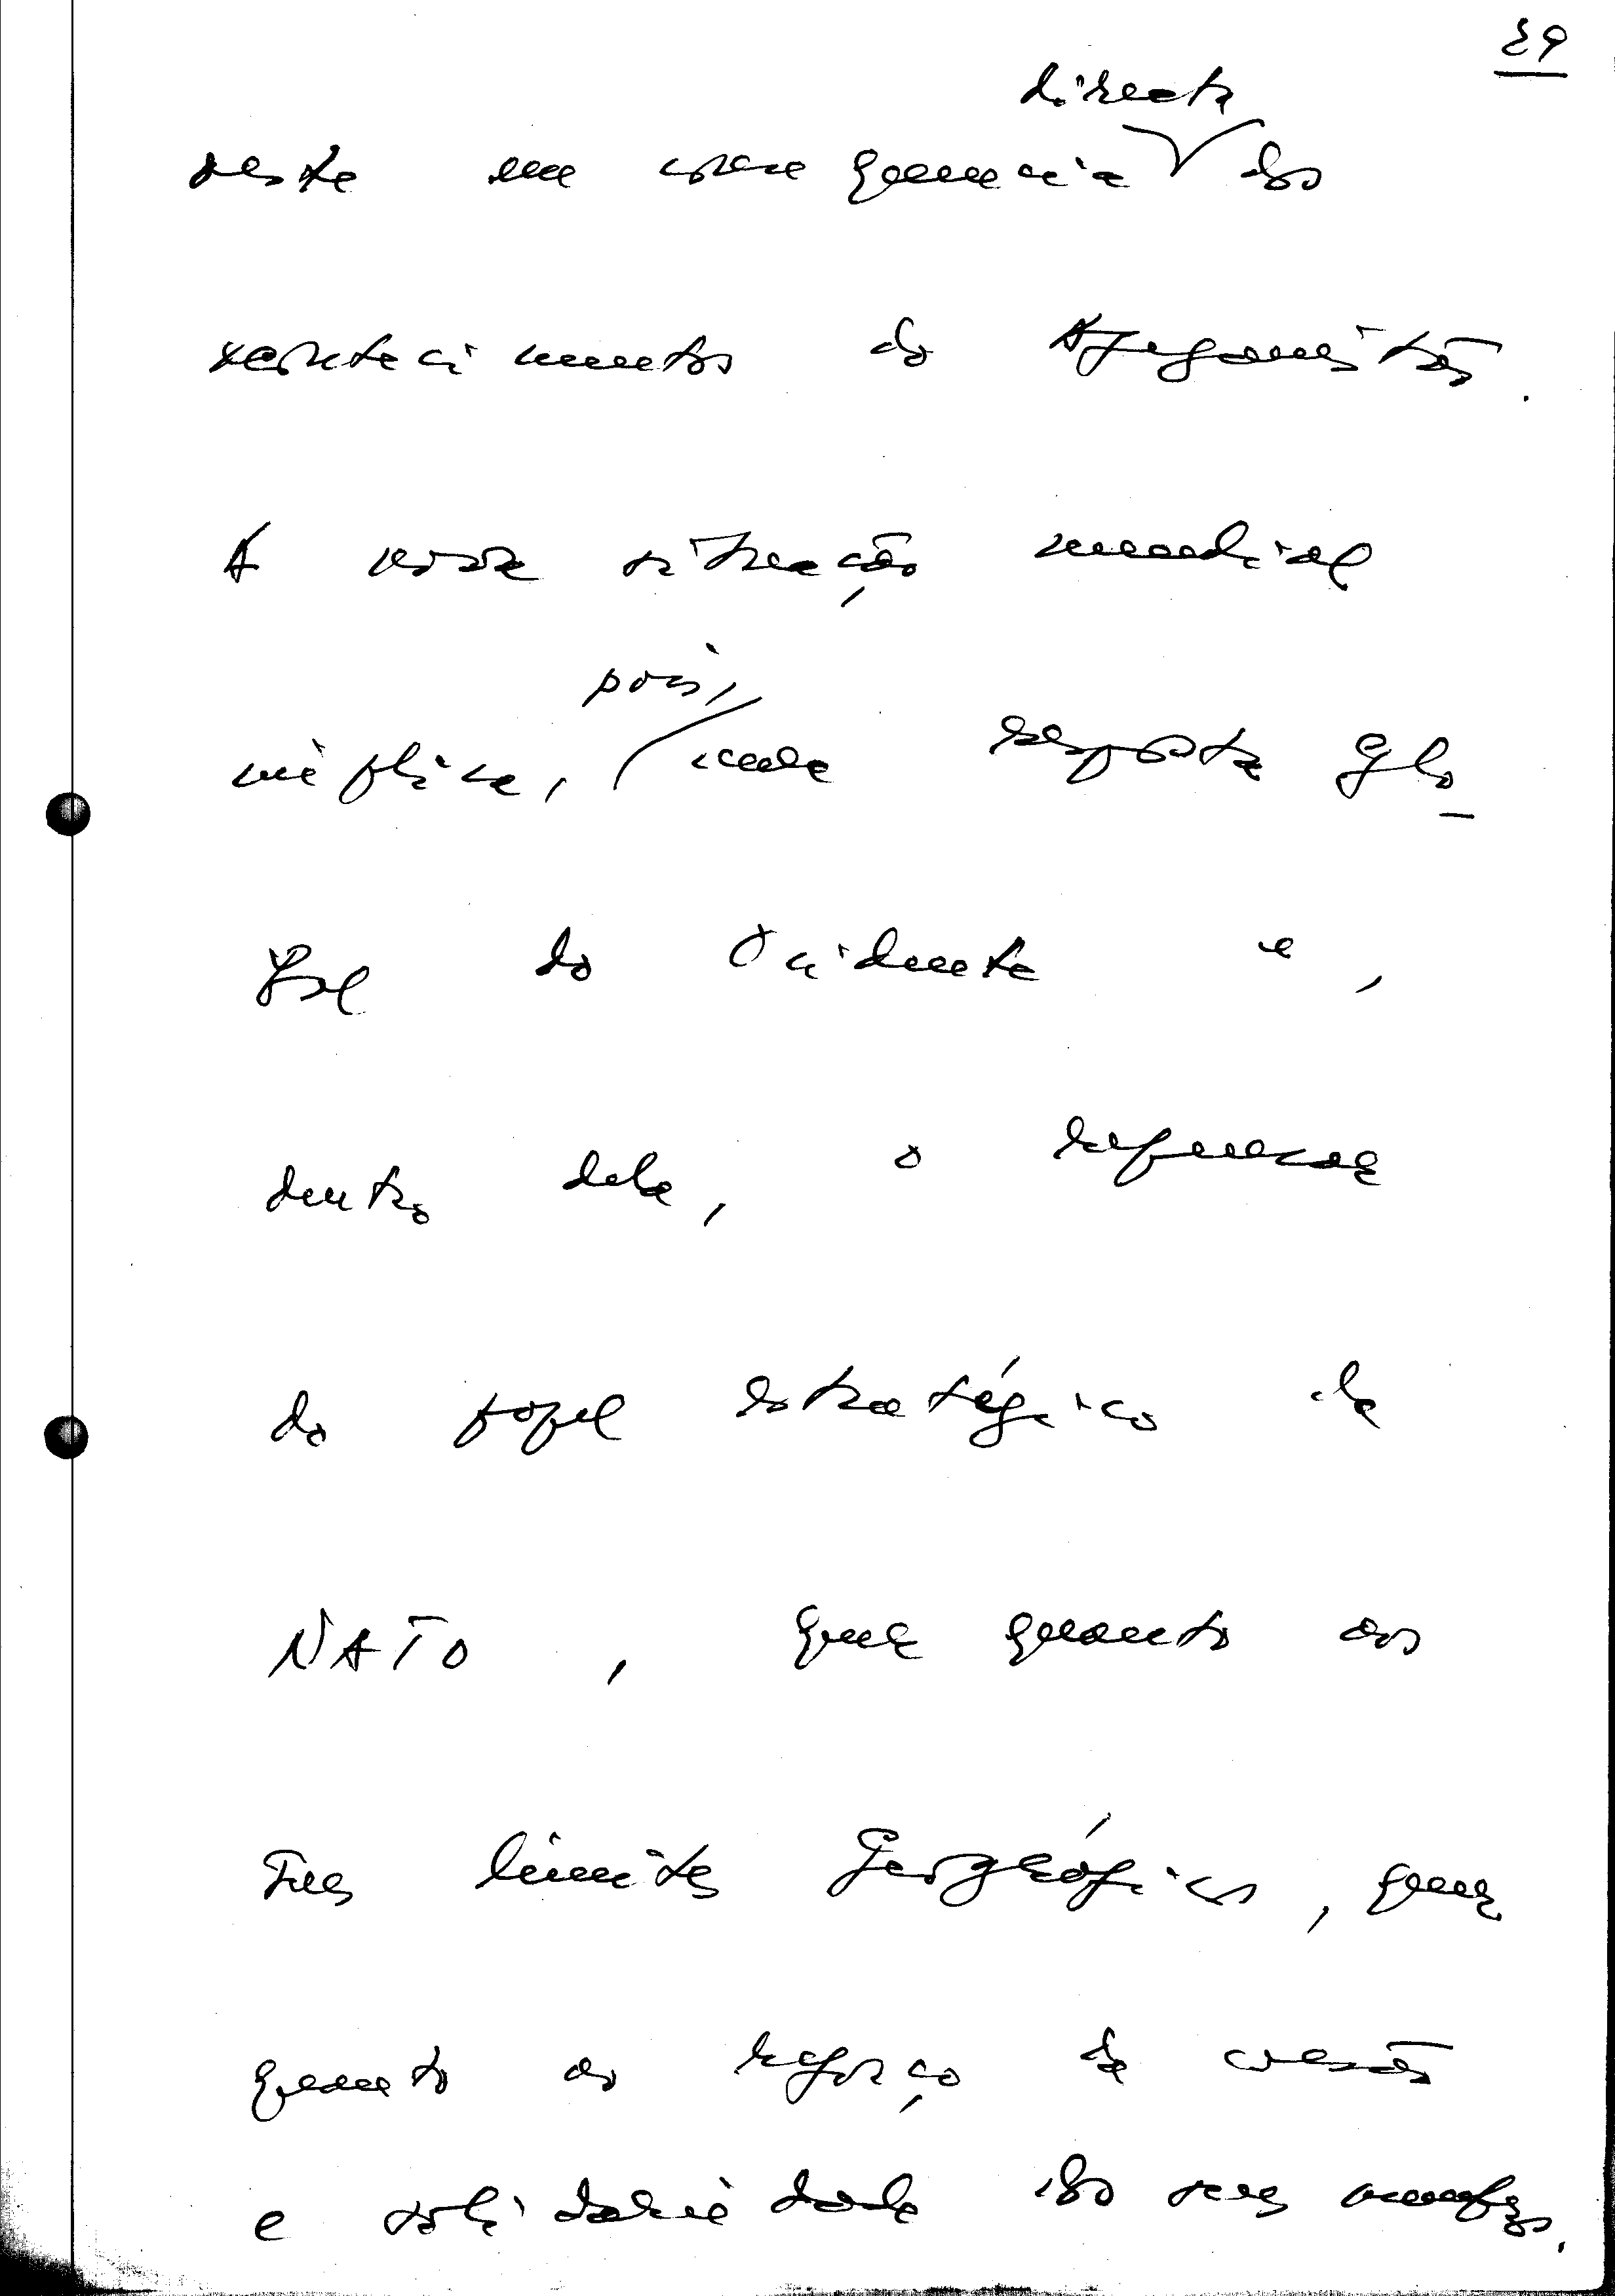 29
directa
Oeste em consequência dos
acontecimentos do Afeganistão.
A nova situação mundial
pois,
implica, uma resposta glo-
bal do Ocidente e,
dentro dela, o repensar
do papel estratégico da
NATO, quer quanto aos
seus limites geográficos, quer
quanto ao reforço da coesão
e solidariedade dos seus membros.